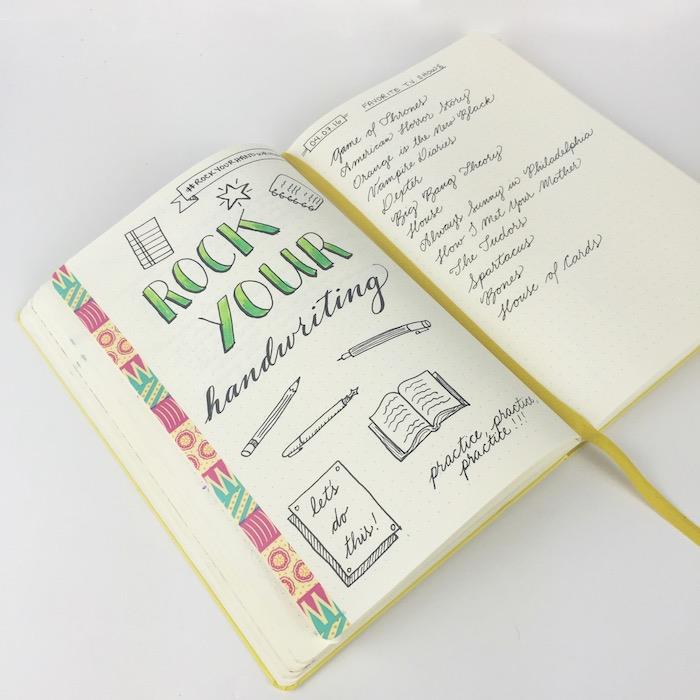 #ROCKYOURHANDWRITING
ROCK
YOUR
handwriting
let's
do
this!
practice, practice,
practice!!!
FAVORITE TV SHOWS
04.07.16
Game of Thrones
American Horror Story
Orange is the New Black
Vampire Diaries
Dexter
Big Bang Theory
House
Always Sunny in Philadelphia
How I Met Your Mother
The Tudors
Spartacus
Bones
House of Cards